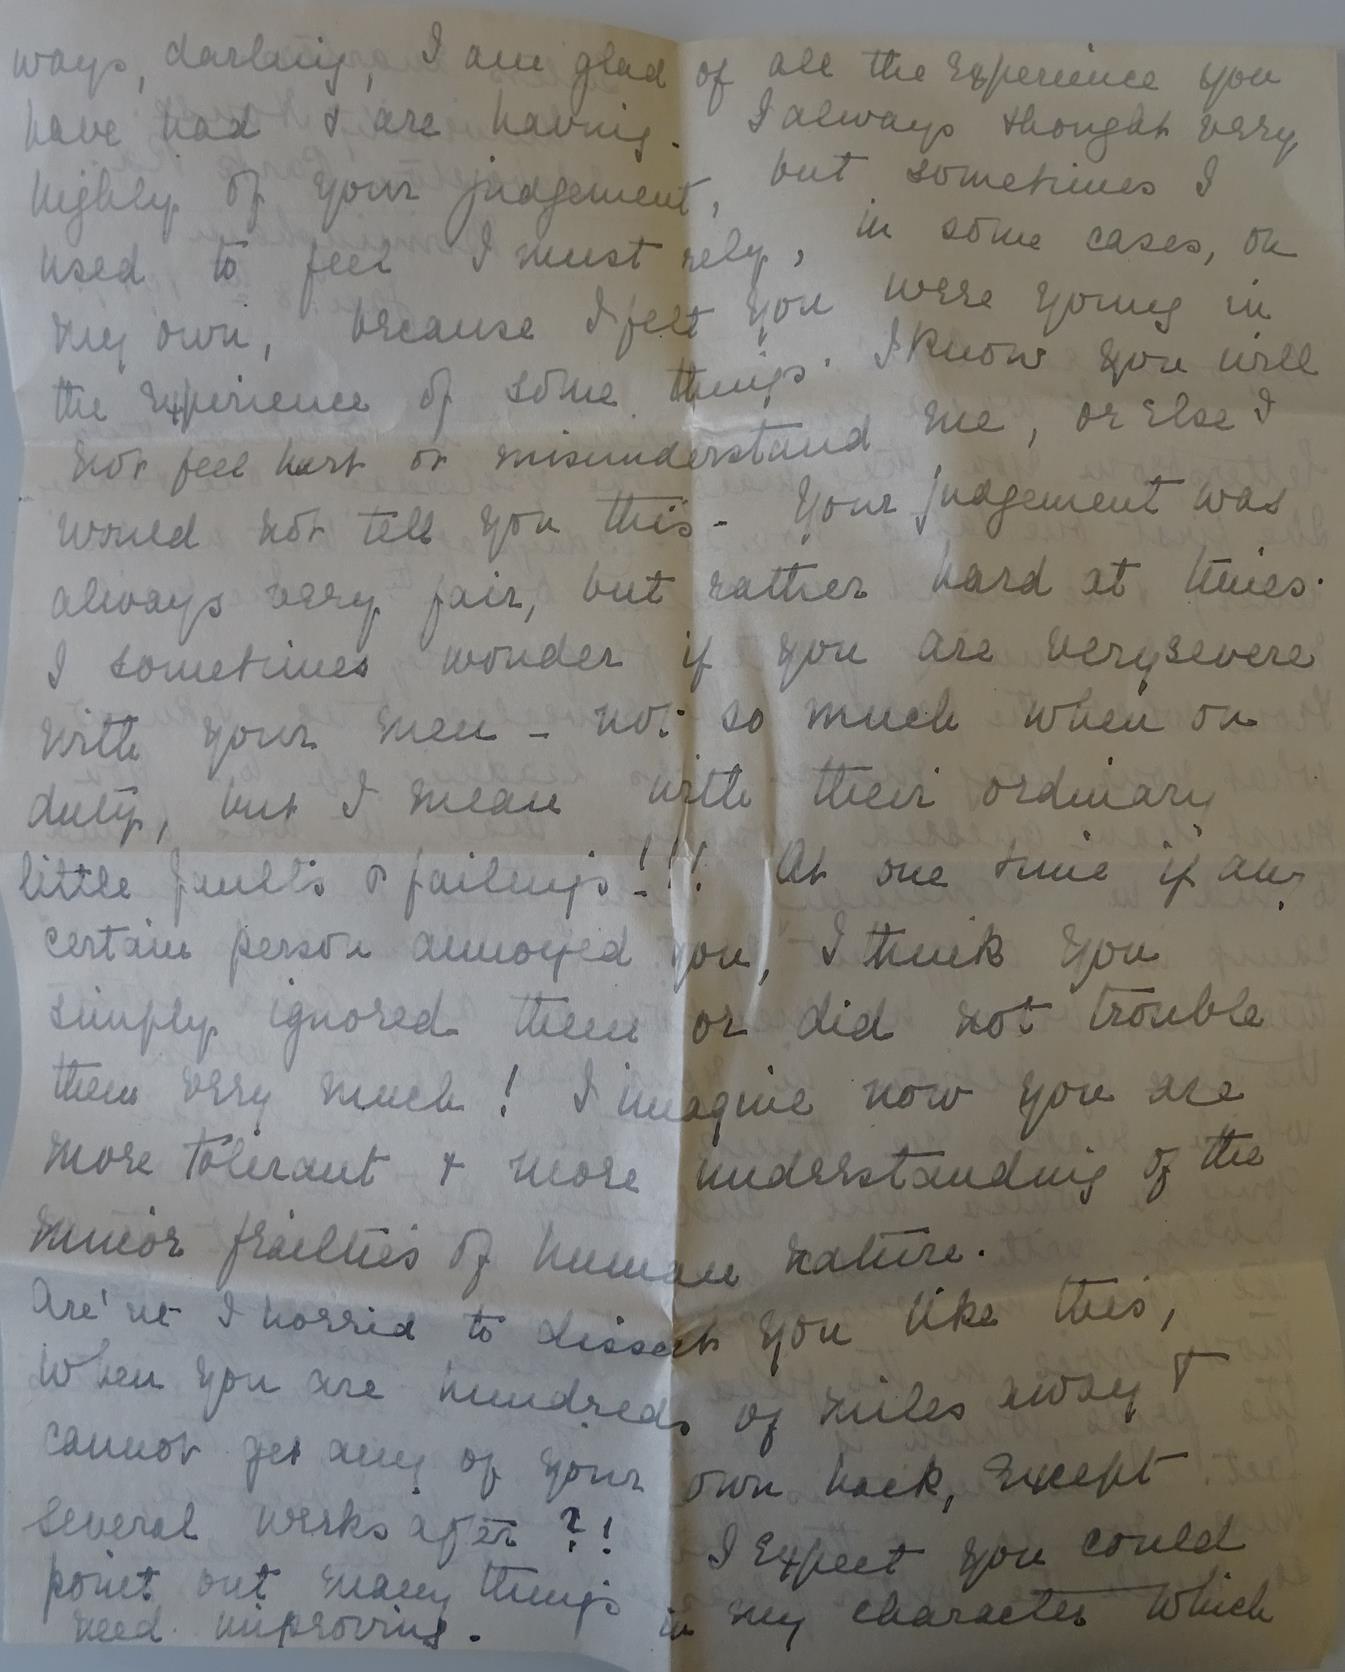 ways, darling, I am glad of all the experience you
have had & are having. I always thought very
highly of your judgement, but sometimes I
used to feel I must rely, in some cases, on
my own, because I felt you were young in
the experience of some things. I know you will
not feel hurt or misunderstand me, or else I
would not tell you this - Your judgement was
always very fair, but rather hard at times.
I sometimes wonder if you are very severe
with your men - not so much when on
duty, but I mean with their ordinary
little faults & failings!!! At one time if any
certain person annoyed you, I think you
simply ignored them or did not trouble
them very much! I imagine now you are
more tolerant & more understanding of the
minor frailties of human nature.
Are'nt I horrid to dissect you like this,
when you are hundreds of miles away &
cannot get any of your own back, except
several weeks after?! I expect you could
point out many things in my character which
need improving.